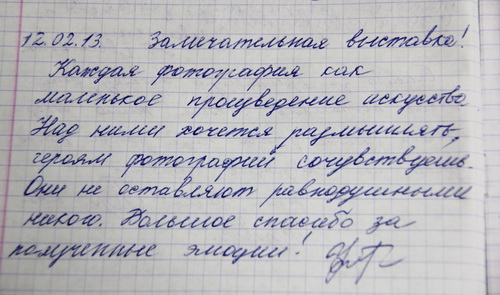 12.02.13. Замечательная выставка!
Каждая фотография как
маленькое произведение искусства.
Над ними хочется размышлять,
героям фотографий сочувствуешь.
Они не оставляют равнодушными
никого. Большое спасибо за
полученные эмоции!